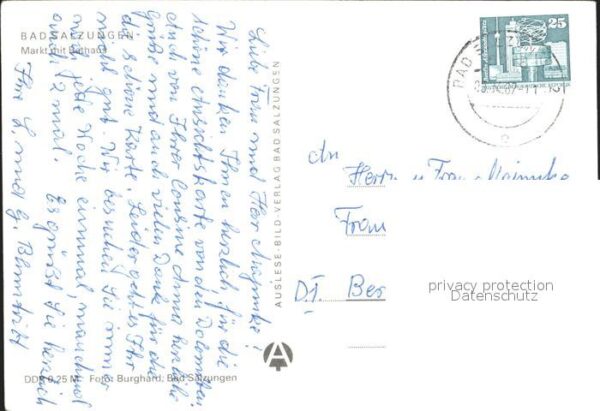 BAD SALZUNGEN
Markt mit Rathaus
Liebe Frau und Herr
Wir danken Ihnen herzlich für die
schöne Ansichtskarte von den Dolomiten
auch von Ihrer Cousine Anna herzliche
Grüße und auch vielen Dank für die
schöne Karte. Leider geht es Ihr
nicht gut. Wir besuchen Sie immer
jede Woche einmal, manchmal
auch 2 mal. Es grüßt Sie herzlich
Ihre L. und G.
DDR 0,25 M Foto: Burghard, Bad Salzungen
AUSLESE-BILD-VERLAG BAD SALZUNGEN
A
25
BAD
An
Herrn u Frau
Frau
D.T. Ber
privacy protection
Datenschutz